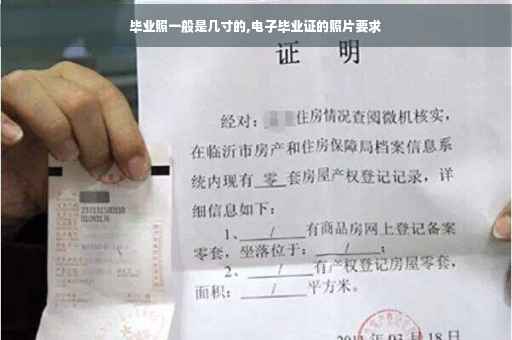 毕业照一般是几寸的,电子毕业证的照片要求
证 明
经对: 住房情况查阅微机核实,
在临沂市房产和住房保障局档案信息系
统内现有 零 套房屋产权登记记录,详
细信息如下:
1、 / 有商品房网上登记备案
零套,坐落位于: / ;
2、 / 有产权登记房屋零套,
面积: / 平方米。
03 月 18 日